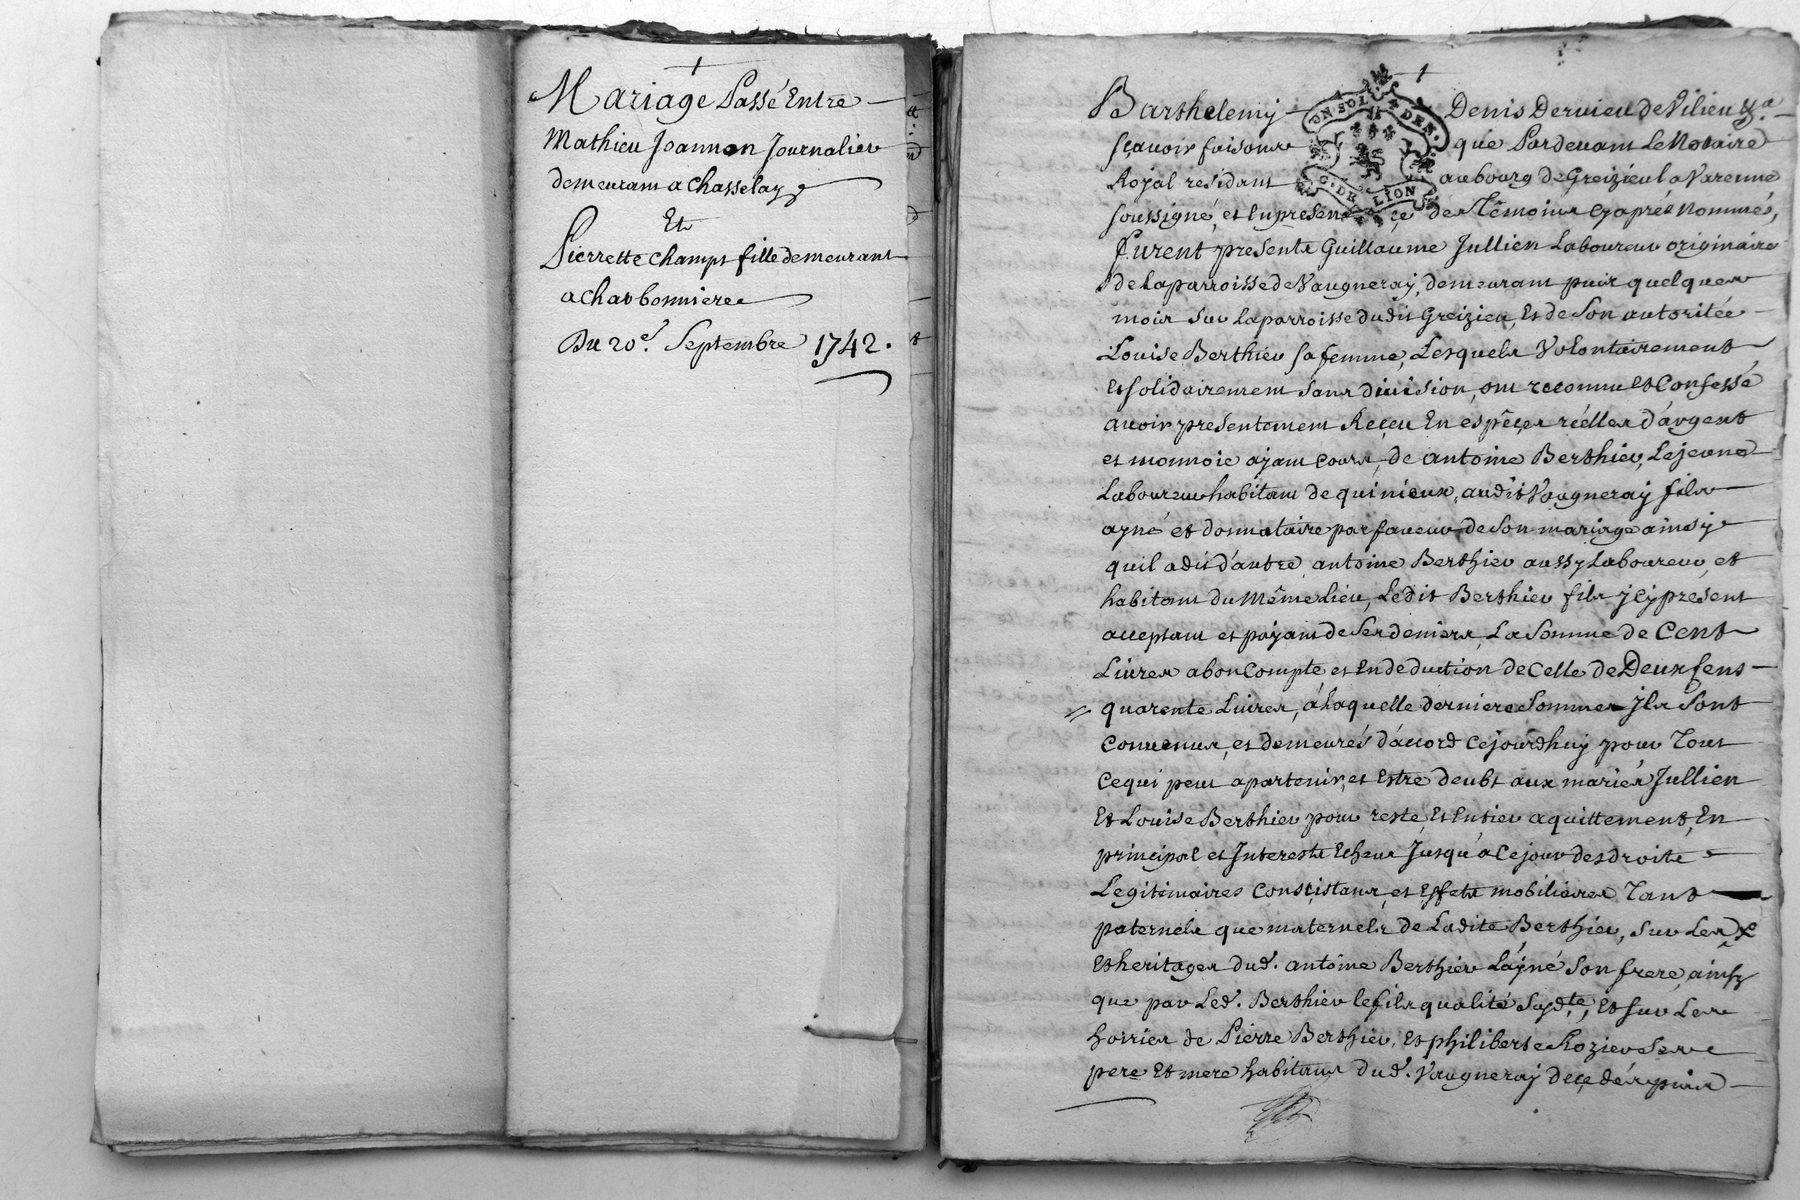 Mariage Passé Entre
Mathieu Joannon Journalier
demeurant a chasselay
Et
Pierrette champs fille demeurant
a charbonnieres
Du 20e. Septembre 1742.
Barthelemy Denis Dervieu de Vilieu &a
sçavoir faisons que Pardevant Le Notaire
Royal residant au bourg de Greizieu la Varenne
soussigné, et En presence des Têmoins cy apres Nommés,
Furent presents Guillaume Jullien Laboureur originaire
de La parroisse de Vaugneray, demeurant puis quelques
mois sur La parroisse dudit Greizieu, Et de Son autoritée
Louise Berthier sa femme, Lesquels Volontairement
Et solidairement sans division, ont reconnu et Confessé
avoir presentement Reçeu En espêçes réelles d'argent
et monnoie ayant cours, de antoine Berthier, Le jeune
Laboureur habitant de quinieux, audit Vaugneray fils
ayné et donnataire par faveur de Son mariage ainsy
quil a dit d'autre antoine Berthier aussy Laboureur, et
habitant du Même Lieu, Ledit Berthier fils jcy present
acceptant et payant de Ses deniers, La Somme de Cent
Livres a bon Compte et En deduction de Celle de Deux Cens
quarente Livres, á Laquelle derniere Somme Jls Sont
Convenus, et demeurés d'accord Cejourdhuy pour Tout
Ce qui peut apartenir, et Estre deubt aux mariés Jullien
Et Louise Berthier pour reste, Et Entier aquittement, En
principal et Interests Echeus Jusqu'a Ce jour des droits
Legitimaires Consçistans, et Effets mobiliaires Tant
paternels que maternels de Ladite Berthier, Sur Les
Et heritages dud. antoine Berthier L'ayné Son frere, ainsy
que par Led. Berthier le fils qualité Susdte, Et Sur Les
hoiries de Pierre Berthier, Et philiberte Rozier Ses
pere Et mere habitans dud. Vaugneray deçedés puis
UN SOL. 4 DEN.
G. DE LION